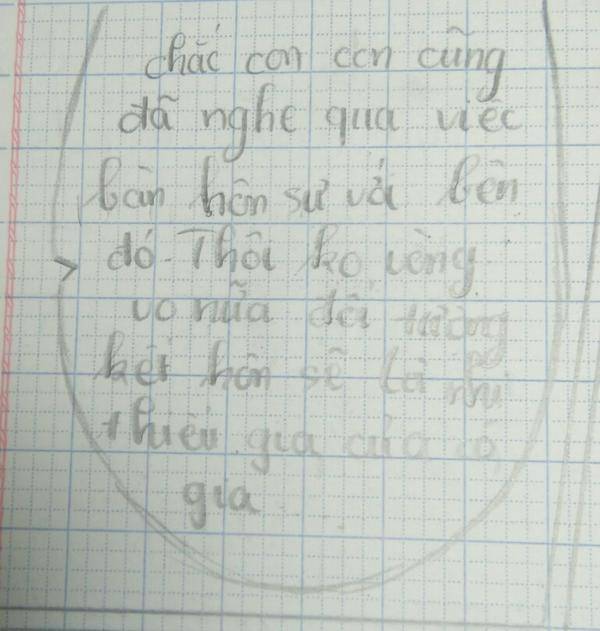 chắc con còn cũng
đã nghe qua việc
bàn hôn sự với bên
đó. Thôi ko vòng
vo nữa đối tượng
kết hôn sẽ là nhị
thiếu gia của cố
gia